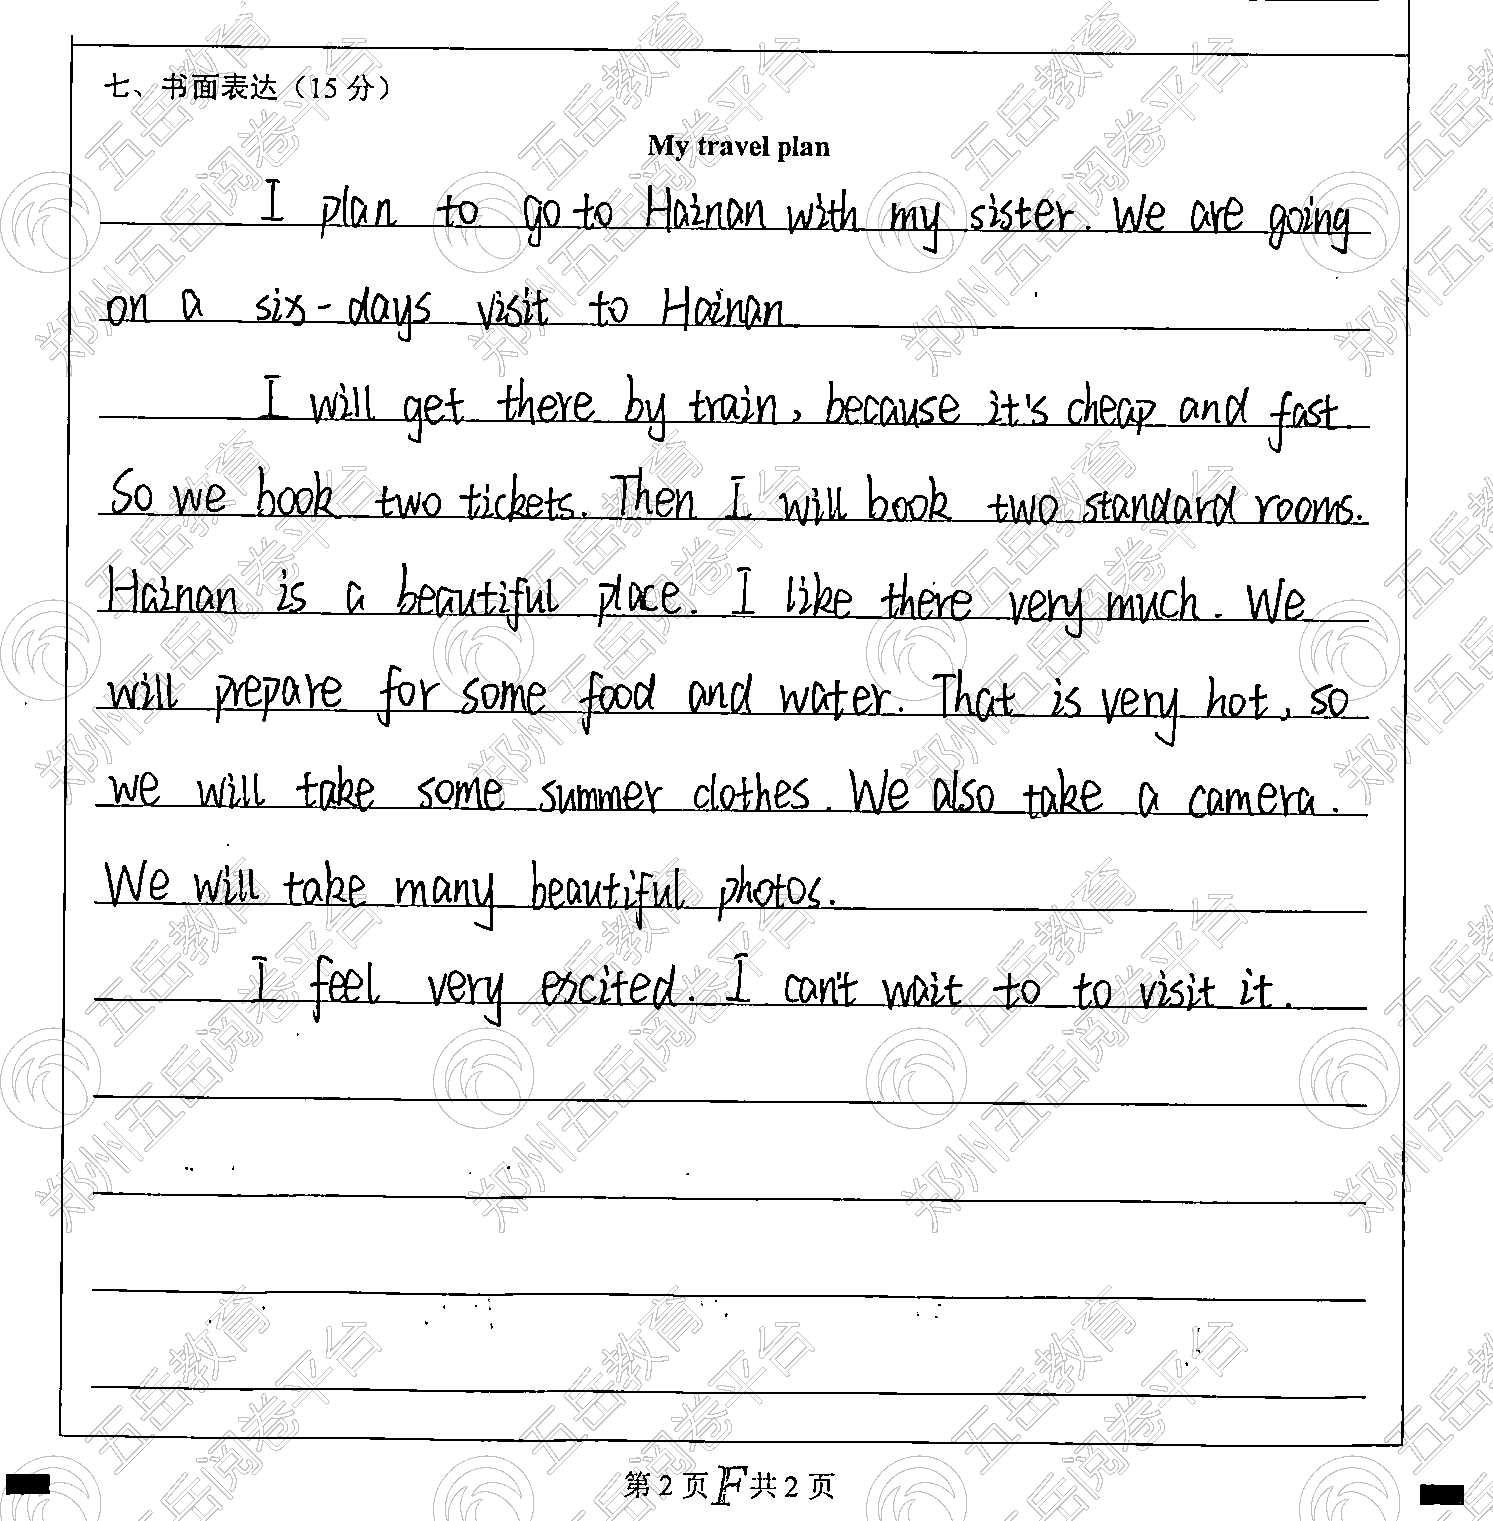 七、书面表达（15 分）
My travel plan
I plan to go to Hainan with my sister. We are going
on a six-days visit to Hainan
I will get there by train, because it's cheap and fast.
So we book two tickets. Then I will book two standard rooms.
Hainan is a beautiful place. I like there very much. We
will prepare for some food and water. That is very hot, so
we will take some summer clothes. We also take a camera.
We will take many beautiful photos.
I feel very excited. I can't wait to to visit it.
第 2 页 F 共 2 页
郑州五岳教育
五岳阅卷平台